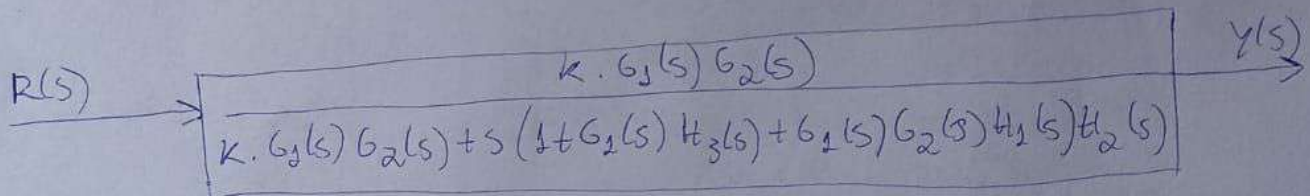 R(s)
k . G1(s) G2(s)
Y(s)
k . G1(s) G2(s) + s (1 + G1(s) H3(s) + G1(s) G2(s) H1(s) H2(s)